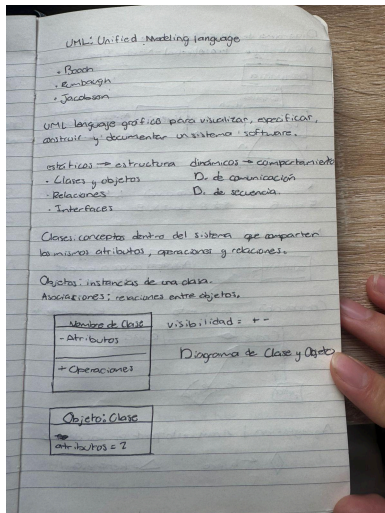 UML: Unified Modeling language
• Booch
• Rumbaugh
• Jacobson
UML lenguaje gráfico para visualizar, especificar,
construir y documentar un sistema software.
estáticos → estructura dinámicos → comportamiento
• Clases y objetos D. de comunicación
• Relaciones D. de secuencia.
• Interfaces
Clases: conceptos dentro del sistema que comparten
los mismos atributos, operaciones y relaciones.
Objetos: instancias de una clase.
Asociaciones: relaciones entre objetos.
Nombre de Clase visibilidad = + -
- Atributos
Diagrama de Clase y Objeto
+ Operaciones
Objeto: Clase
atributos = 2